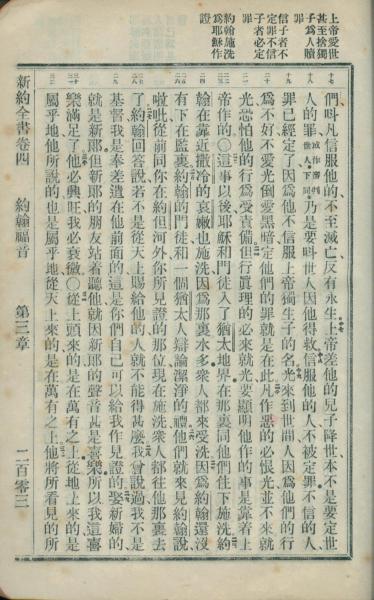 上帝愛世
甚至捨獨
子爲人贖
罪
信子者不
定罪不信
子者必定
罪
約翰施洗
爲耶穌作
證
們呌凡信服他的不至滅亡反有永生上帝差他的兒子降世本不是要定世
人的罪乃是要呌世人因他得救信服他的人不被定罪不信的人
罪已經定了因爲他不信服上帝獨生子的名光來到世間人因爲他們的行
爲不好不愛光倒愛黑暗定他們的罪就是在此凡作惡的必恨光並不來就
光恐怕他的行爲受責備但行眞理的必來就光要顯明他作的事是靠着上
帝作的○這事以後耶穌和門徒入了猶太地界在那裏同他們住下施洗約
翰在靠近撒冷的哀嫩也施洗因爲那裏水多衆人都來受洗因爲約翰還沒
有下在監裏約翰的門徒和一個猶太人辯論潔淨的禮他們就來見約翰說
啦吡從前同你在約但河外你所見證的那位現在施洗衆人都往他那裏去
了約翰回答說若不是從天上賜給他的人就不能得甚麽我曾說過我不是
基督我是奉差遣在他前面的這是你們自己可以給我作見證的娶新婦的
就是新郎但新郎的朋友站着聽他就因新郎的聲音甚是喜樂所以我這喜
樂滿足了他必興旺我必衰微○從上頭來的是在萬有之上從地上來的是
屬乎地他所說的也是屬乎地從天上來的是在萬有之上他將所看見的所
新約全書卷四 約翰福音 第三章 二百零三